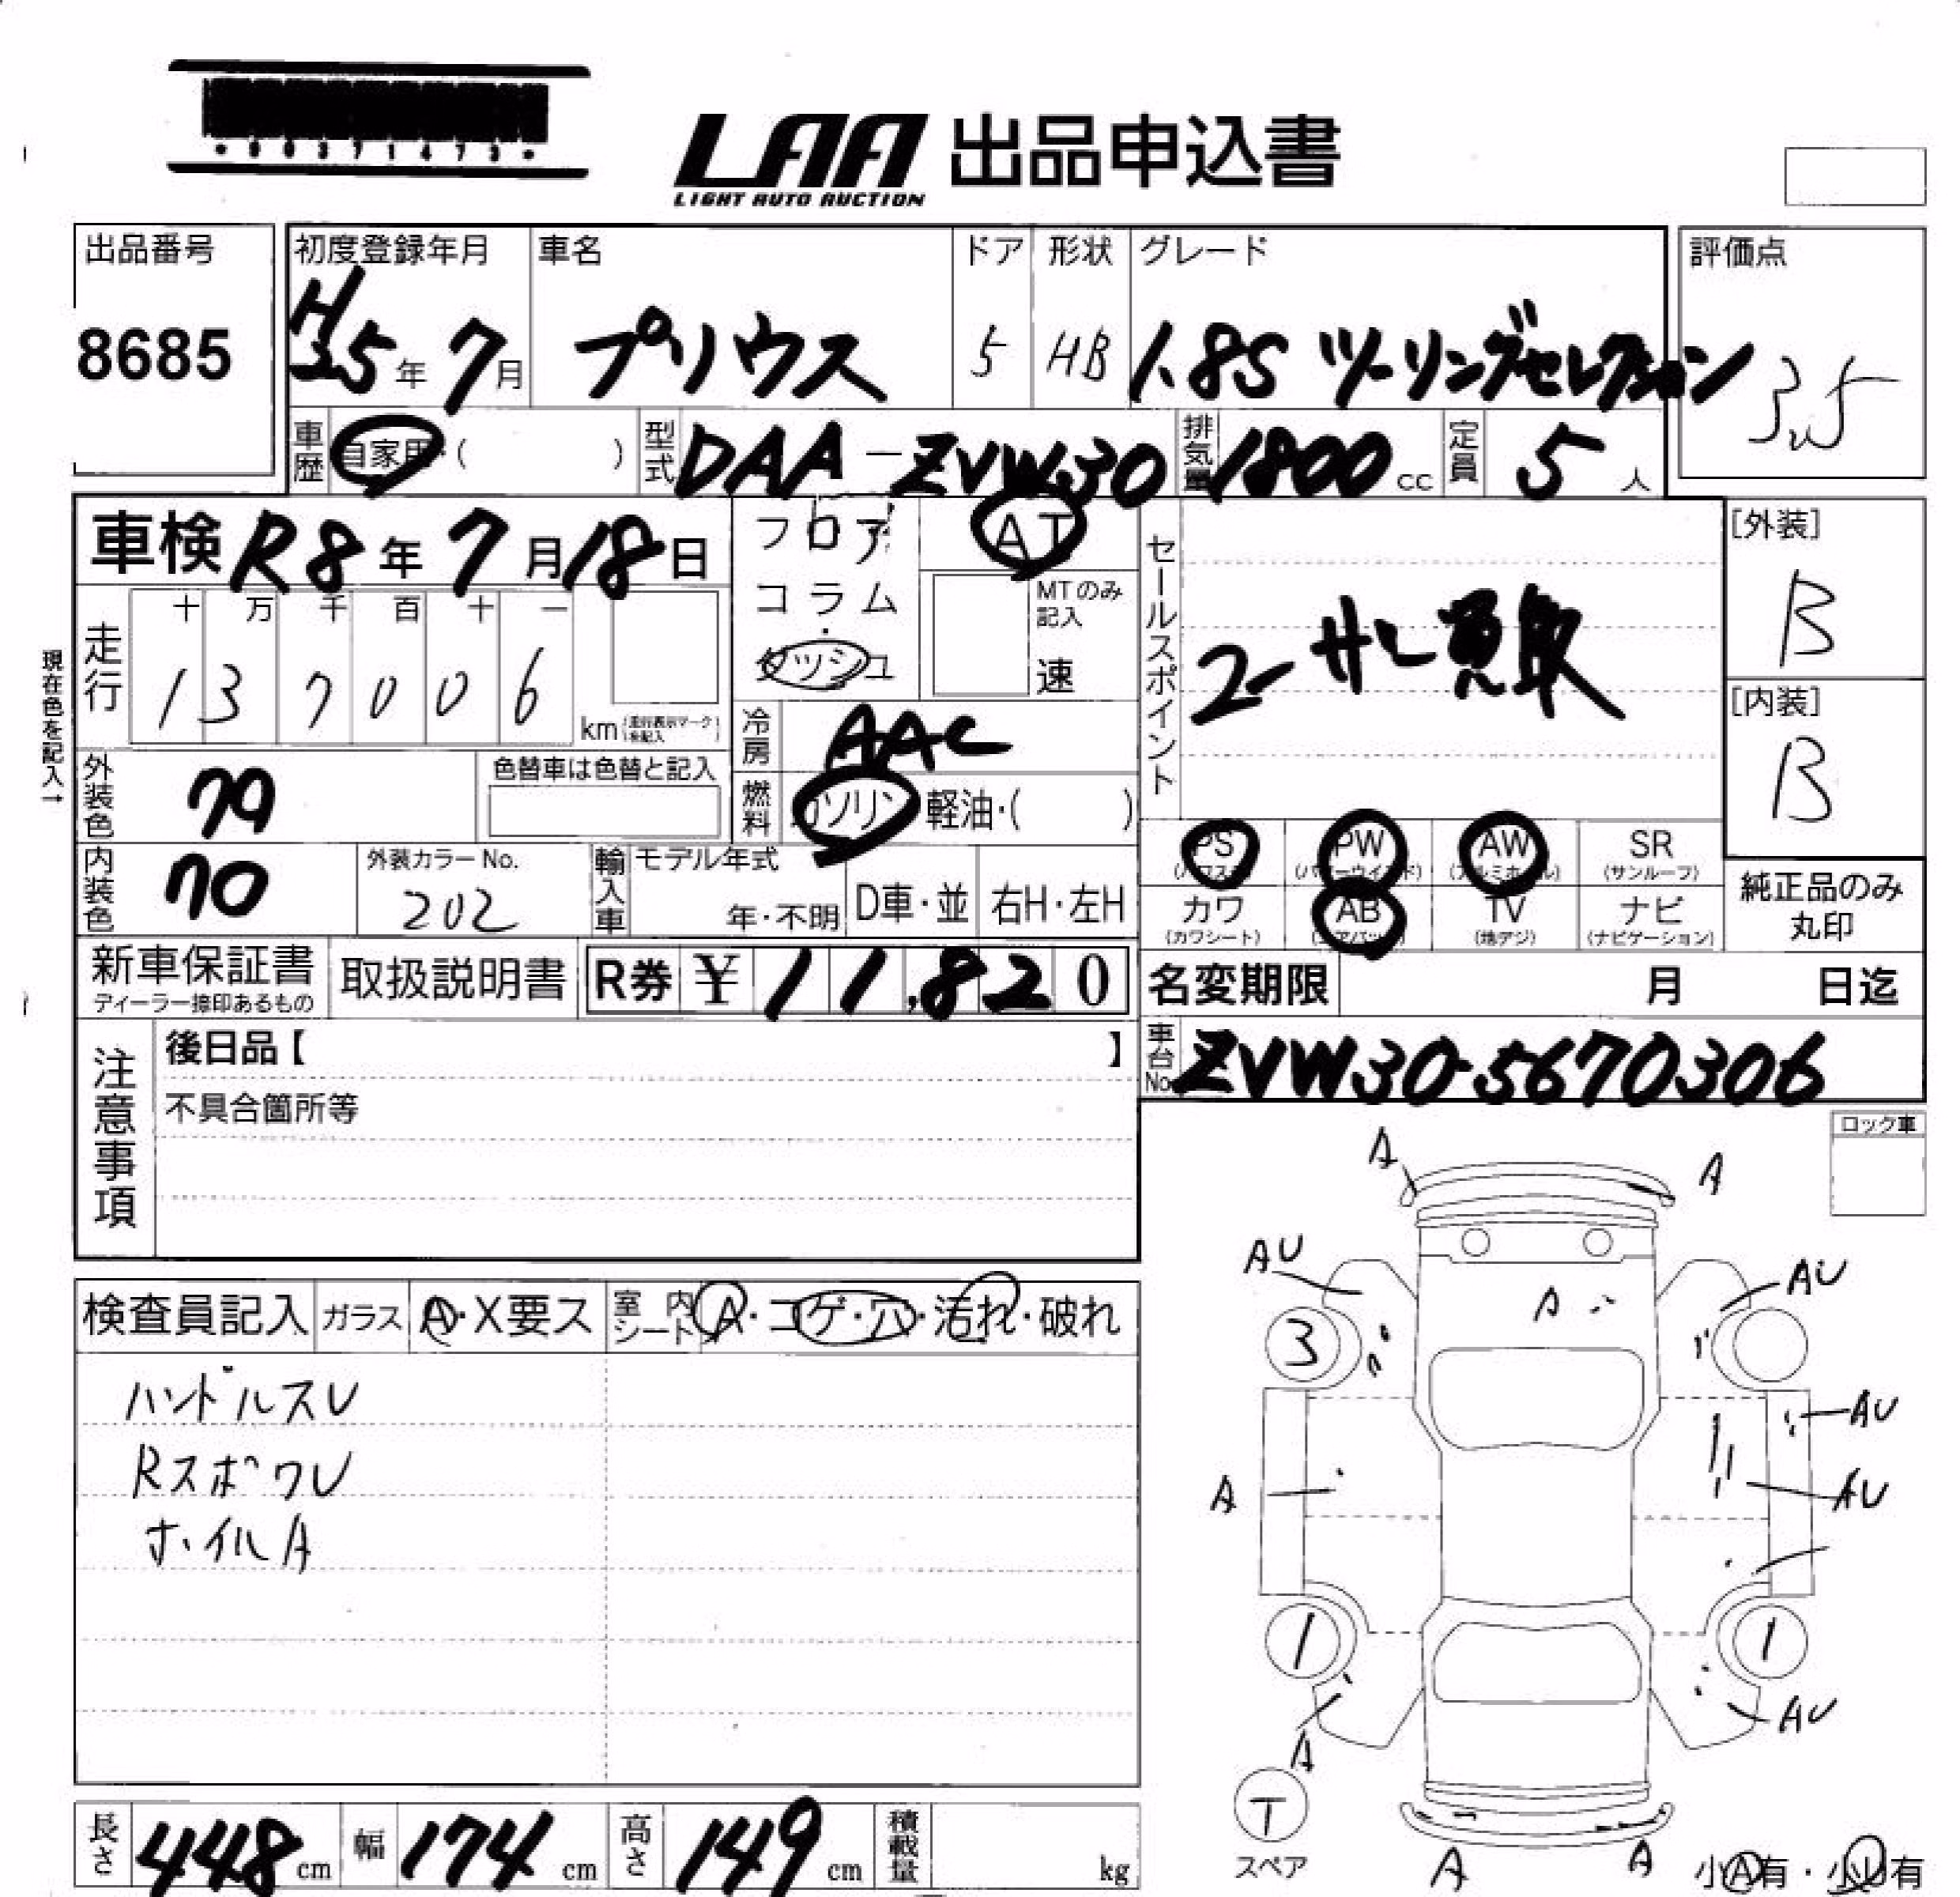 ・00371473・
LAA 出品申込書
LIGHT AUTO AUCTION
出品番号
8685
初度登録年月
H25年 7月
車名
プリウス
ドア
5
形状
HB
グレード
1.8S ツーリングセレクション
評価点
3.5
車歴
自家用・( )
型式
DAA-ZVW30
排気量
1800 cc
定員
5人
車検 R8年 7月18日
フロア
コラム
ダッシュ
AT
MTのみ
記入
速
セールスポイント
ユーザー買取
[外装]
B
[内装]
B
現在色を記入→
走行
十 万 千 百 十 一
1 3 7 0 0 6
km
冷房
AAC
燃料
ガソリン・軽油・( )
外装色
79
色替車は色替と記入
内装色
70
外装カラーNo.
202
輸入車
モデル年式
年・不明
D車・並
右H・左H
PS
PW
AW
SR
(パワステ) (パワーウインド) (アルミホイル) (サンルーフ)
カワ
AB
TV
ナビ
(カワシート) (エアバッグ) (地デジ) (ナビゲーション)
純正品のみ
丸印
新車保証書
ディーラー捺印あるもの
取扱説明書
R券 ¥11,820
名変期限 月 日迄
車台No.
ZVW30-5670306
注意事項
後日品【 】
不具合箇所等
ロック車
検査員記入
ガラス
A・X要ス
室内
シート
A・コゲ・穴・汚れ・破れ
ハンドルスレ
RスポワU
ホイルA
A
A
AU
AU
A
3
AU
AU
A
1
1
AU
A
T
スペア
A
A
小A有・小U有
長さ 448 cm
幅 174 cm
高さ 149 cm
積載量 kg